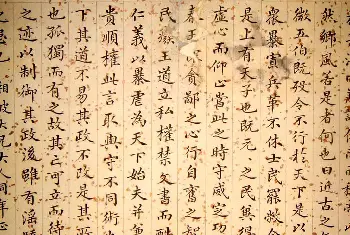 然鄉風若是者何也曰近古之
微五伯既殁令不行於天下是以
衆暴寡兵革不休士民罷敝今
是上有天子也既元〻之民冀得
虚心而仰上當此之時守威定功
秦王貪鄙之心行自奮之智
民廢王道立私權禁文書而酷
仁義以暴虐為天下始夫并兼
貴順權此言取與守不同術
下其道不易其政不改是其所
也孤獨而有之故其亡可立而待
之迹以制御其政後雖有淫驕